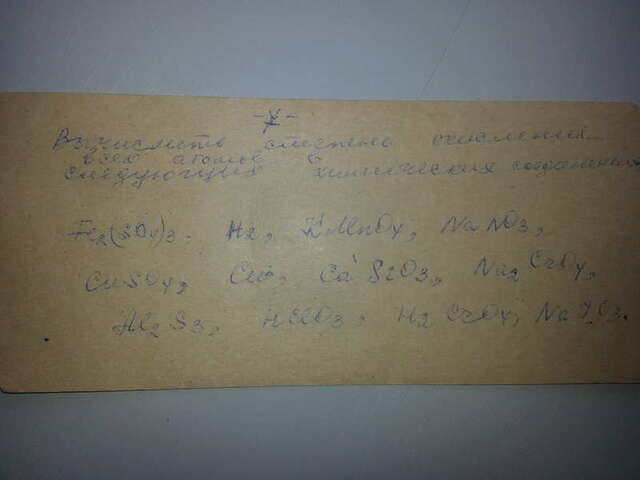 Вычислить степень окисления
всех атомов в
следующих химических соединениях
Fe₂(SO₄)₃, H₂, KMnO₄, NaNO₃,
CuSO₄, CaSiO₃, Na₂CrO₄,
Al₂S₃, HClO₃, H₂CrO₄,